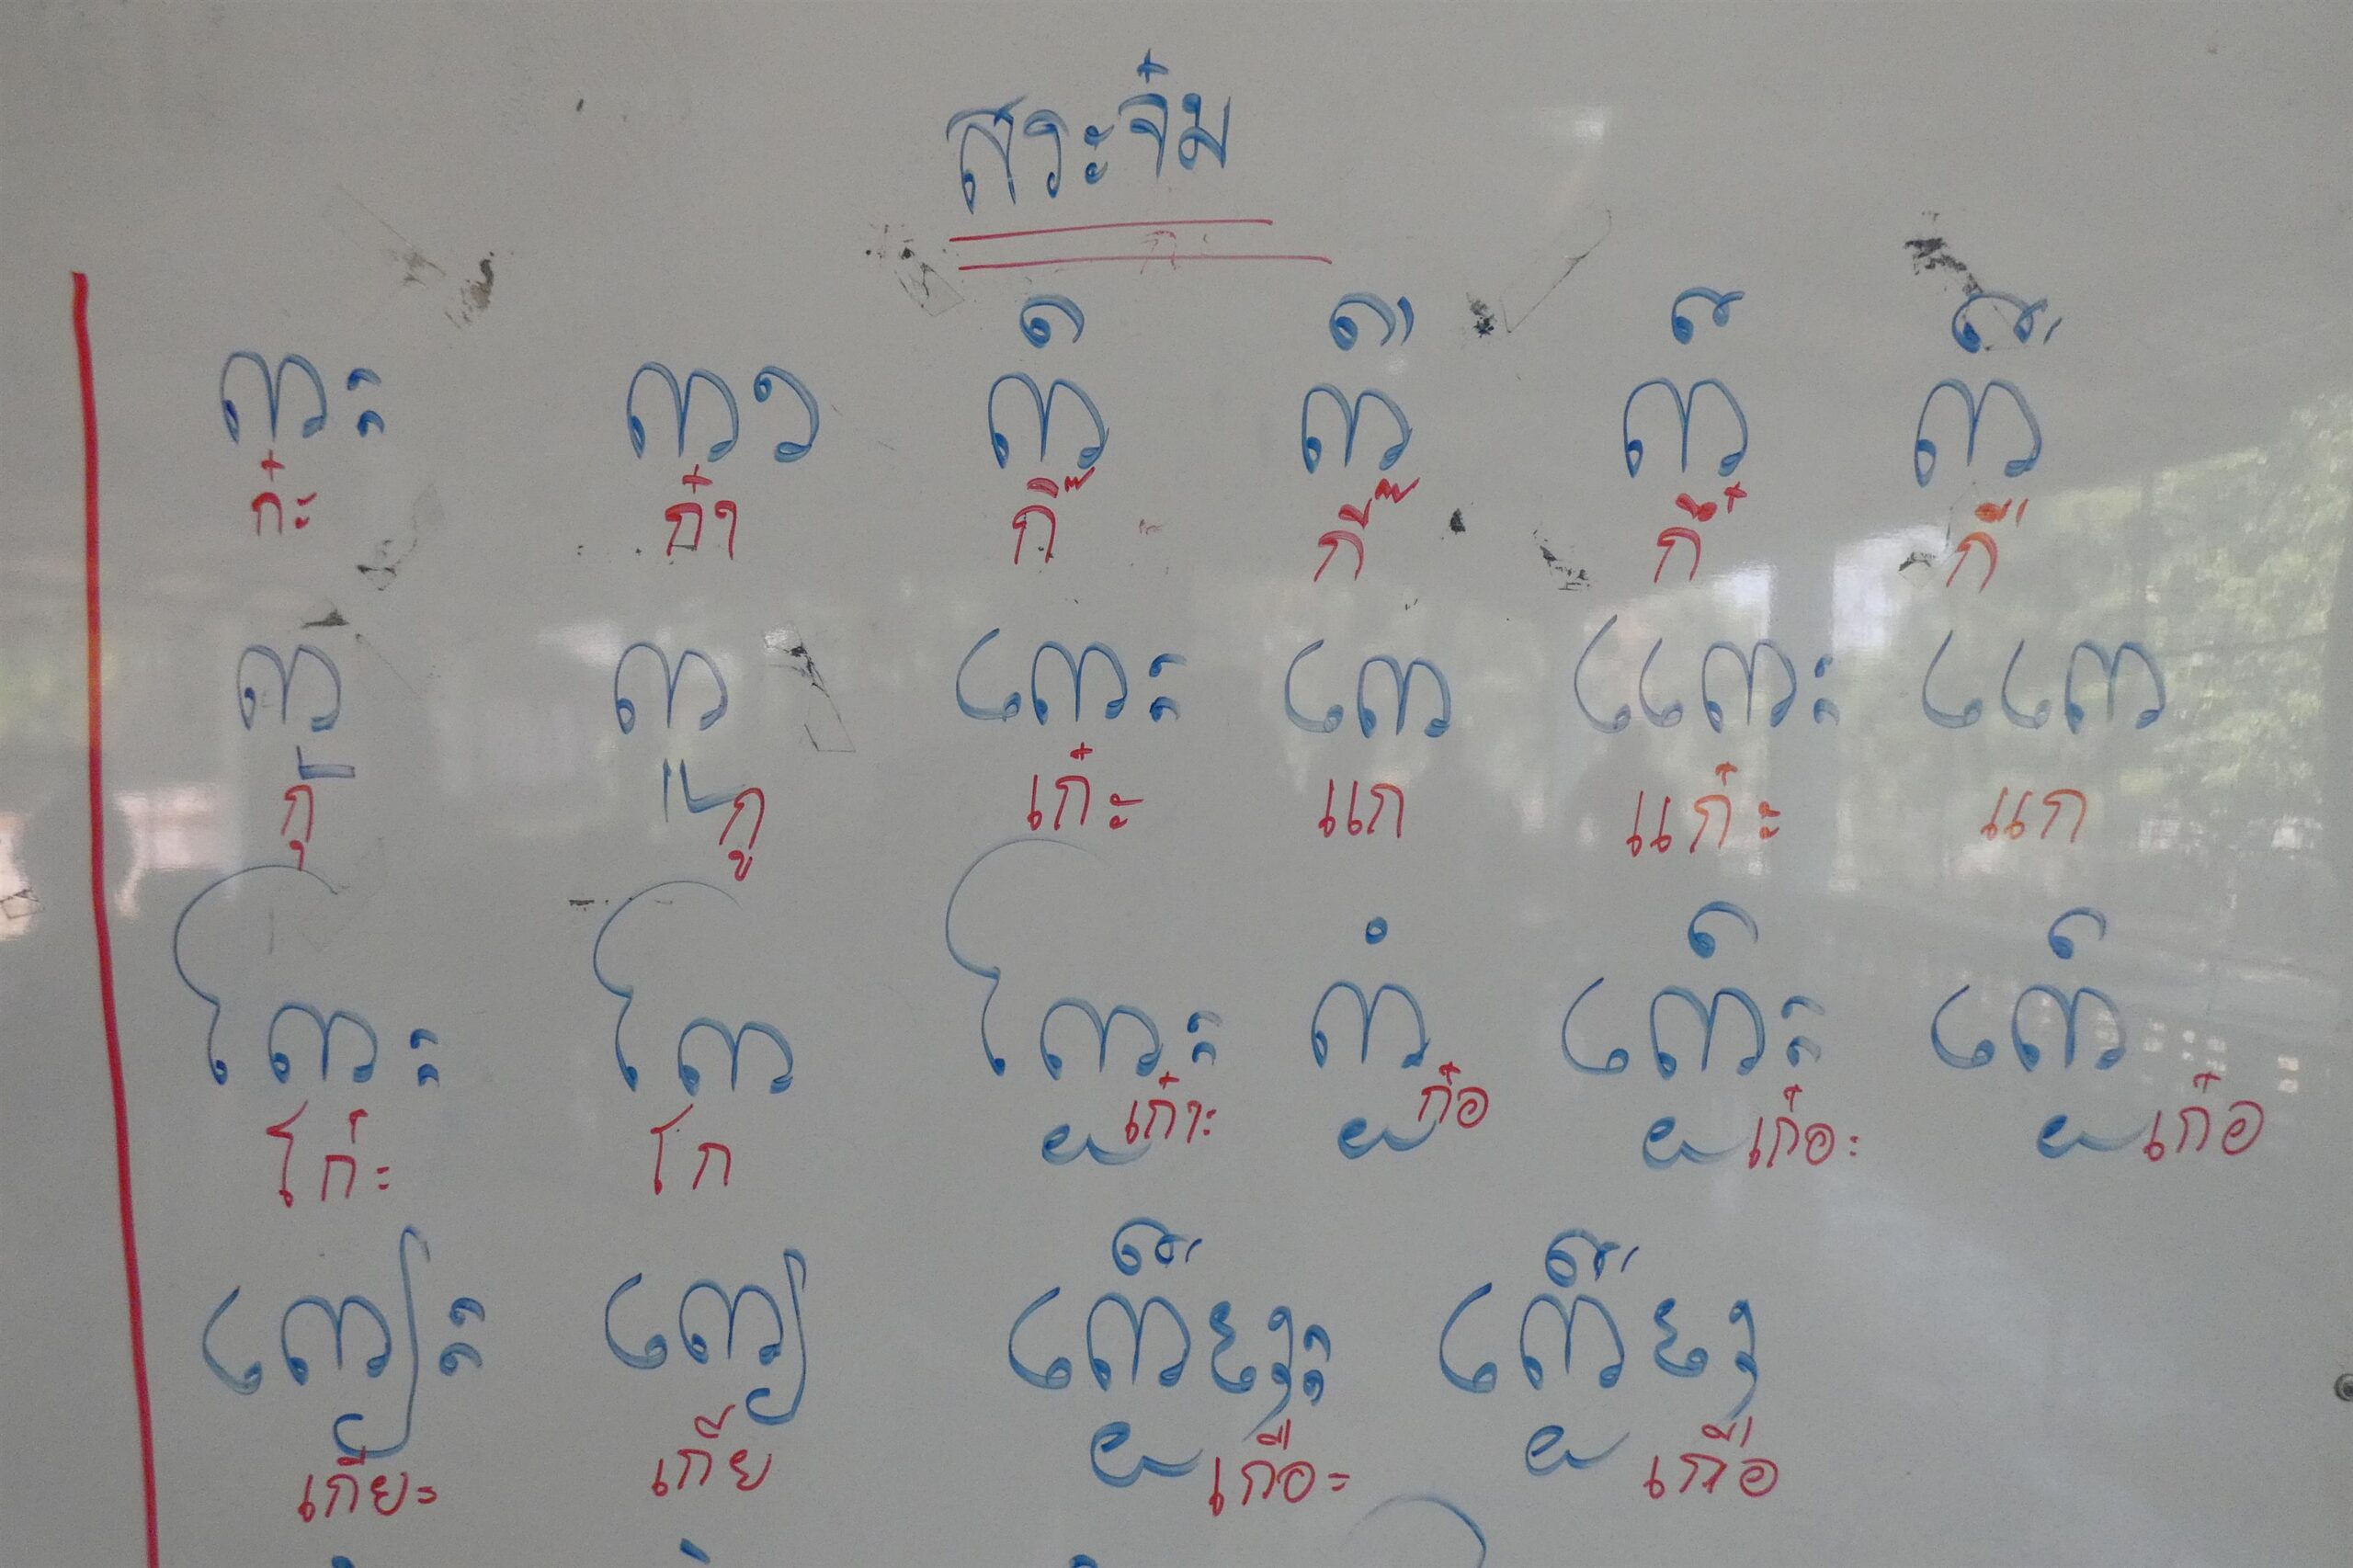 สระจ๋ม
ᨠᩡ ᨠᩣ ᨠᩥ ᨠᩦ ᨠᩧ ᨠᩨ
ก๋ะ ก๋า กิ๊ กี๊ กึ๋ กื
ᨠᩩ ᨠᩪ ᨠᩮᩡ ᨠᩮ ᨠᩯᩡ ᨠᩯ
กุ กู เก๋ะ แก แก๋ะ แก
ᨠᩰᩡ ᨠᩰ ᨠᩰᩬᩡ ᨠᩬᩴ ᨠᩮᩬᩥᩡ ᨠᩮᩬᩥ
โก๋ะ โก เก๋าะ ก๋อ เก๋อะ เก๋อ
ᨠᩮ᩠ᨿᩡ ᨠᩮ᩠ᨿ ᨠᩮᩬᩨᩋᩡ ᨠᩮᩬᩨᩋ
เกียะ เกีย เกือะ เกือ